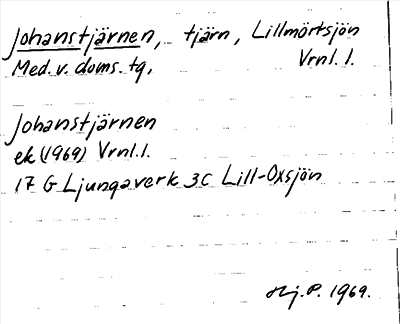 Johanstjärnen, tjärn, Lillmörtsjön
Med. v. doms. tg, Vrnl. l.
Johanstjärnen
ek (1969) Vrnl. l.
17 G Ljungaverk 3c Lill-Oxsjön
Hj. P. 1969.